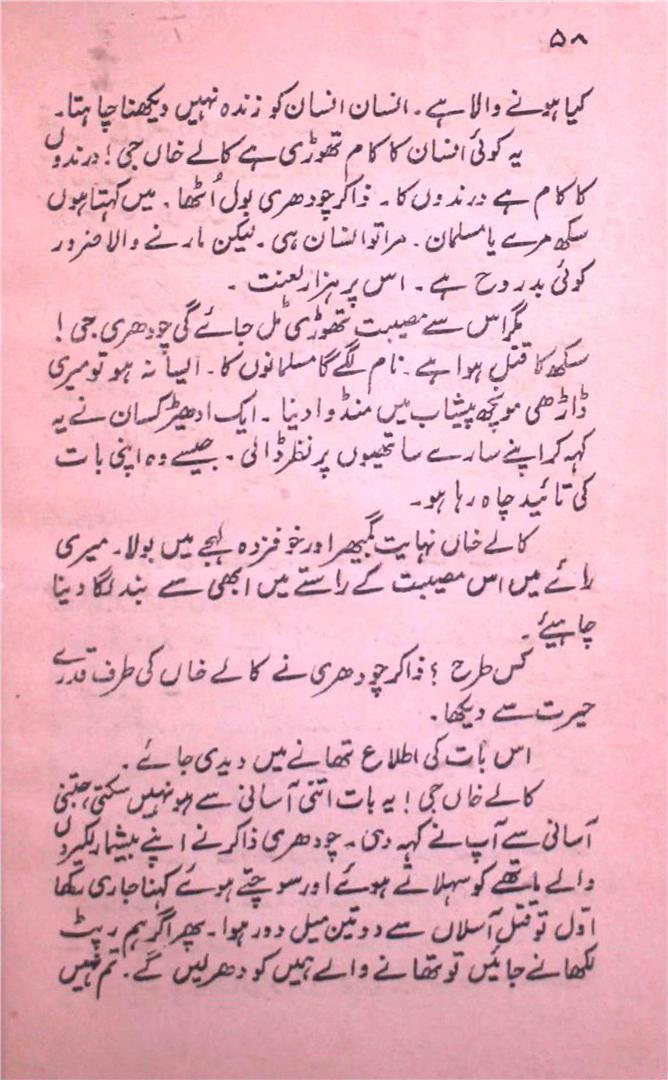 ۵۸
کیا ہونے والا ہے۔ انسان انسان کو زندہ نہیں دیکھنا چاہتا۔
یہ کوئی انسان کا کام تھوڑی ہے کالے خاں جی! درندوں
کا کام ہے درندوں کا۔ ذاکر چودھری بول اُٹھا۔ میں کہتا ہوں
سکھ مرے یا مسلمان۔ مرا تو انسان ہی۔ لیکن مارنے والا ضرور
کوئی بدروح ہے۔ اس پر ہزار لعنت۔
مگر اس سے مصیبت تھوڑی ٹل جائے گی چودھری جی!
سکھ کا قتل ہوا ہے۔ نام لگے گا مسلمانوں کا۔ ایسا نہ ہو تو میری
ڈاڑھی مونچھ پیشاب میں منڈوا دینا۔ ایک ادھیڑ کسان نے یہ
کہہ کر اپنے سارے ساتھیوں پر نظر ڈالی۔ جیسے وہ اپنی بات
کی تائید چاہ رہا ہو۔
کالے خاں نہایت گمبھیر اور خوفزدہ لہجے میں بولا۔ میری
رائے میں اس مصیبت کے راستے میں ابھی سے بند لگا دینا
چاہیئے۔
کس طرح؟ ذاکر چودھری نے کالے خاں کی طرف قدرے
حیرت سے دیکھا۔
اس بات کی اطلاع تھانے میں دیدی جائے۔
کالے خاں جی! یہ بات اتنی آسانی سے ہو نہیں سکتی، جتنی
آسانی سے آپ نے کہہ دی۔ چودھری ذاکر نے اپنے بیشمار لکیروں
والے ماتھے کو سہلاتے ہوئے اور سوچتے ہوئے کہنا جاری رکھا
اوّل تو قتل آسلاں سے دو تین میل دور ہوا۔ پھر اگر ہم رپٹ
لکھانے جائیں تو تھانے والے ہمیں کو دھر لیں گے۔ تم نہیں